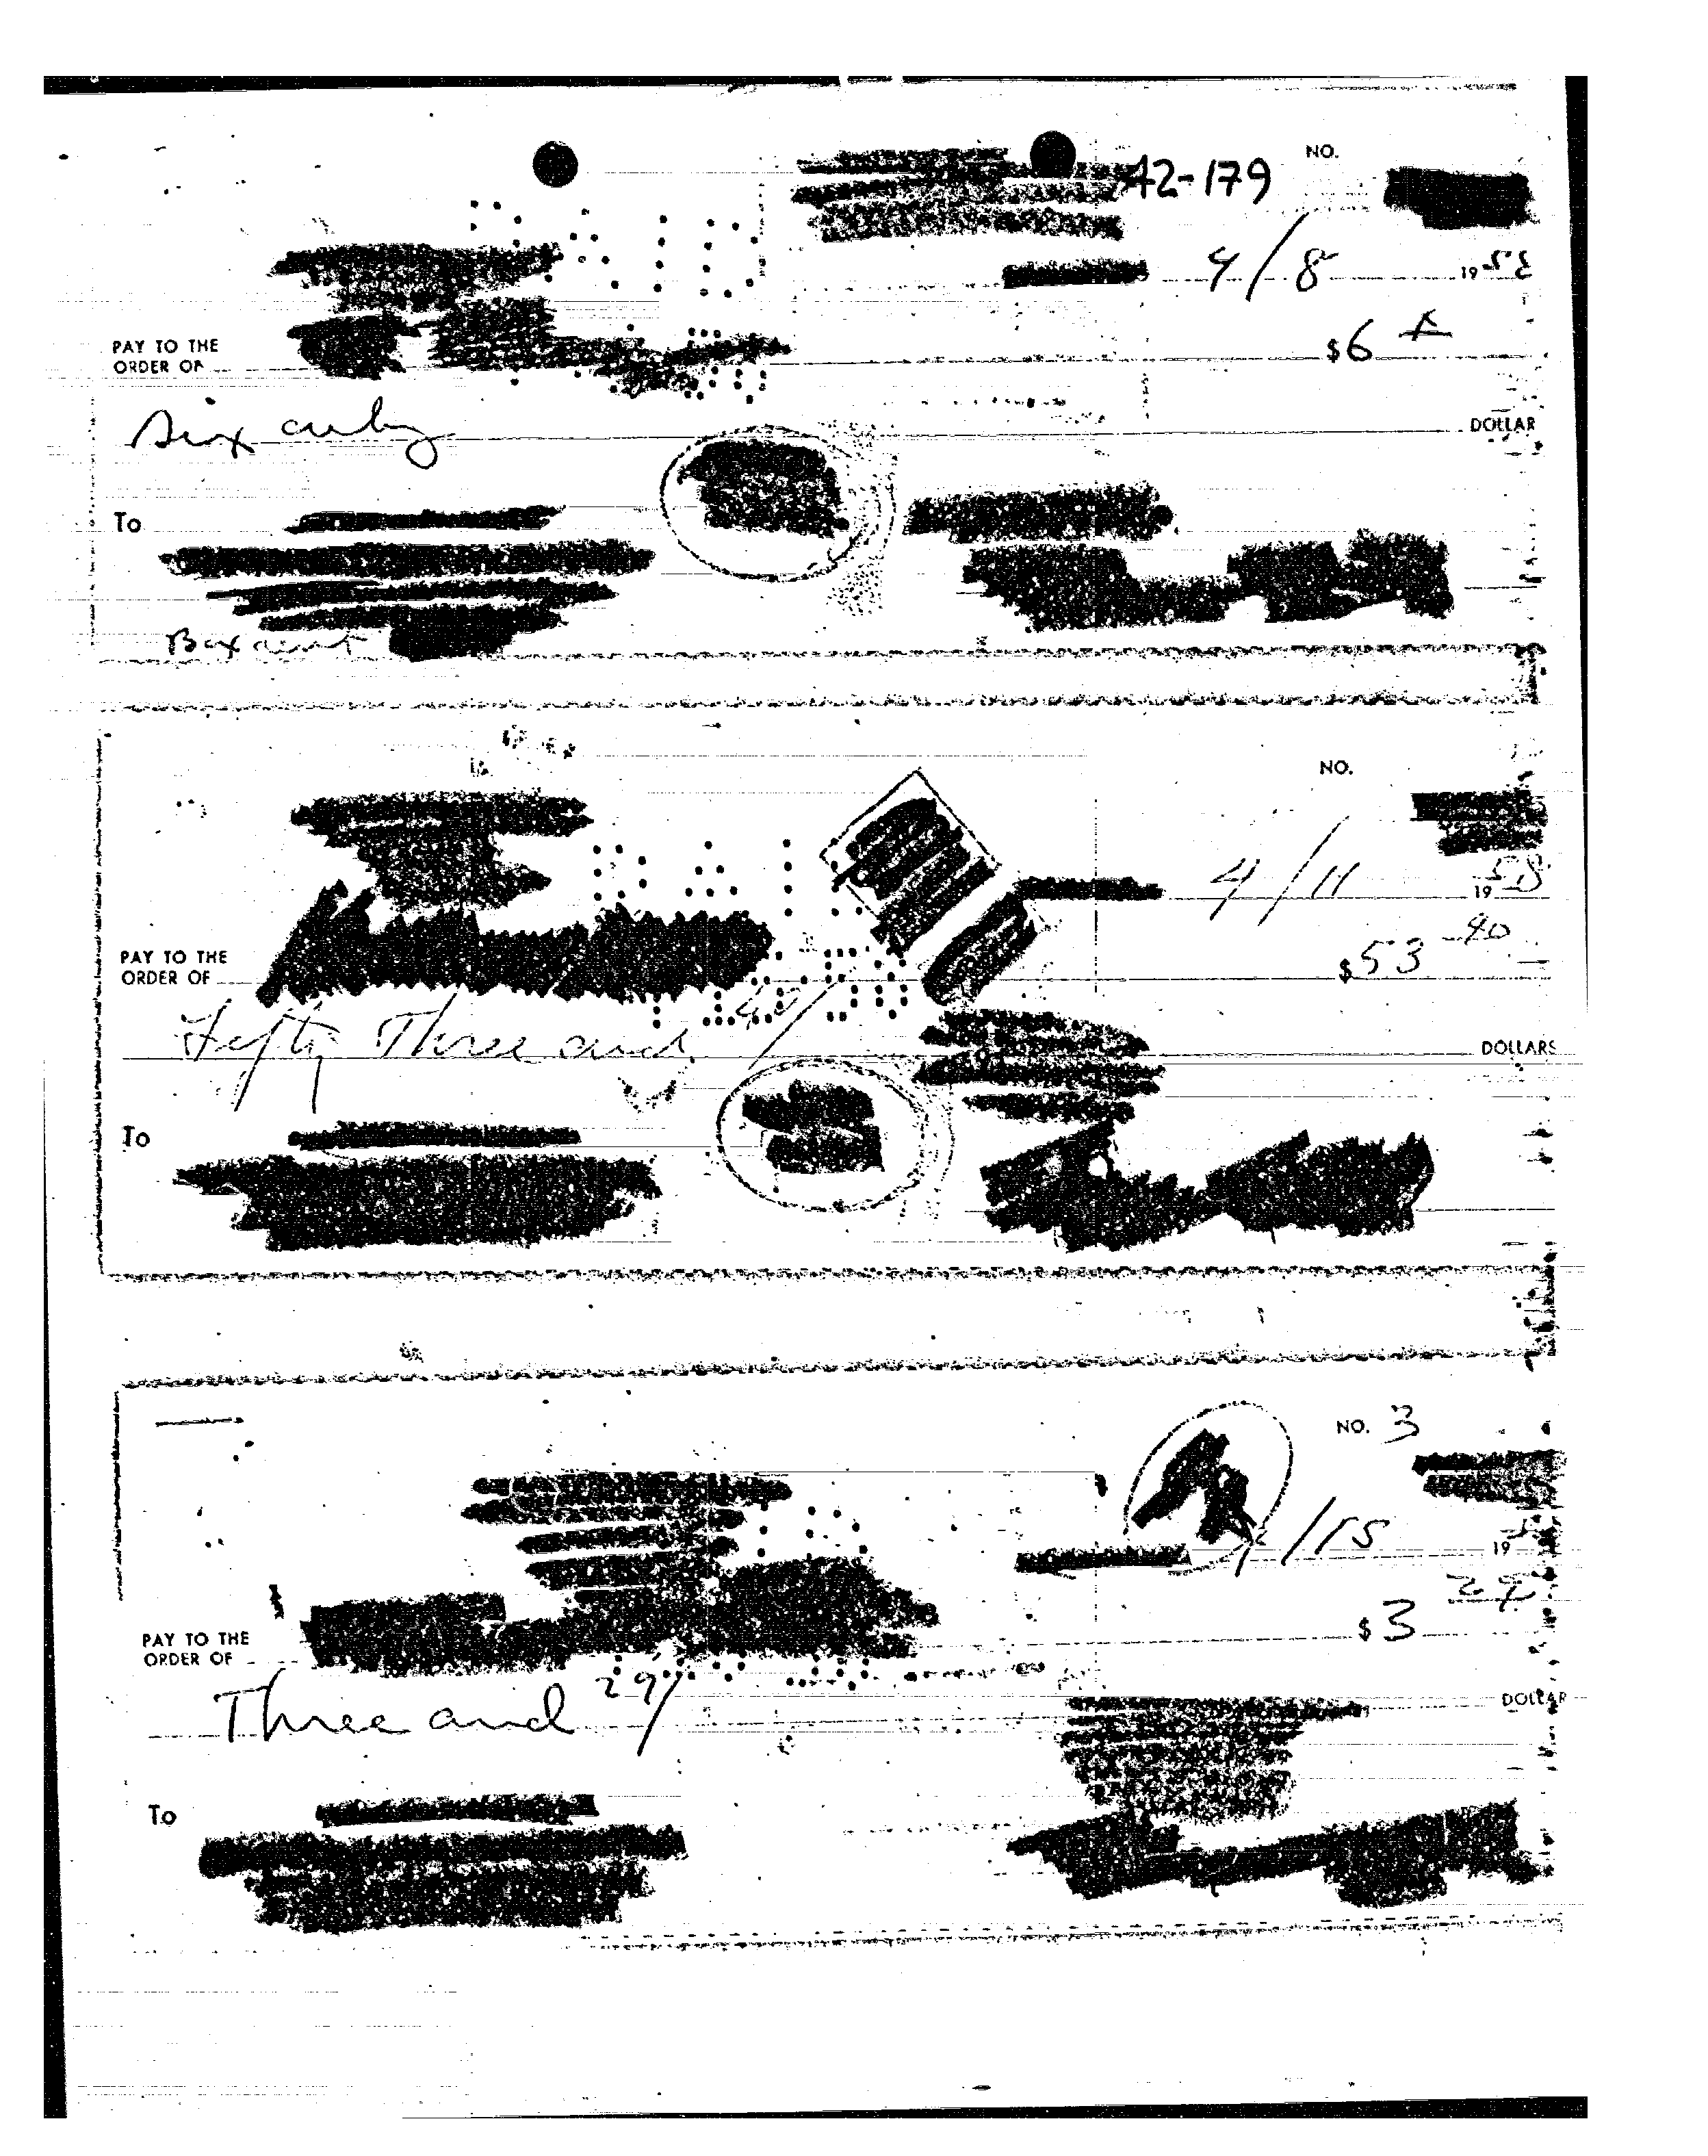 42-179 NO.
4/8 19 58
PAY TO THE
ORDER OF $6
Six only DOLLAR
To
Box
NO.
4/11 19 58
PAY TO THE
ORDER OF $53 40
Fifty Three and 40/ DOLLARS
To
NO. 3
4/15 19
PAY TO THE
ORDER OF $3 29
Three and 29/ DOLLAR
To